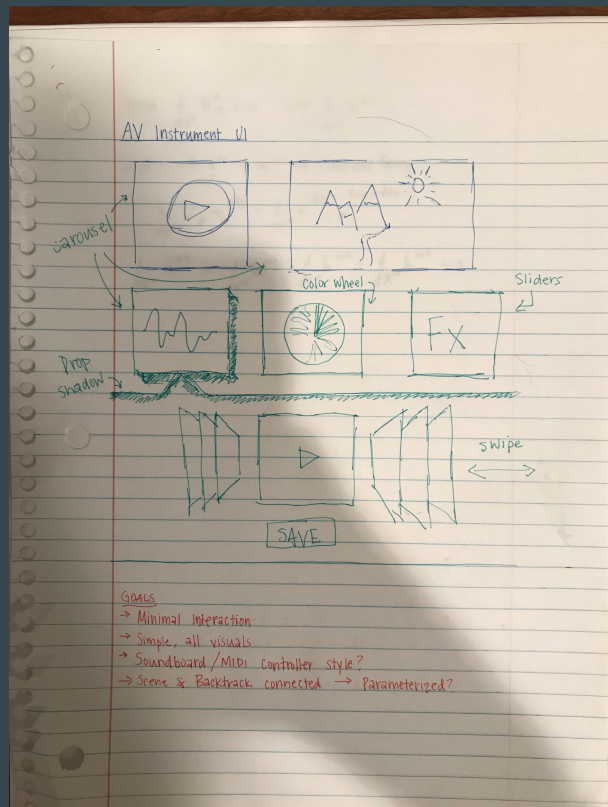 AV Instrument UI
carousel
Color Wheel
Sliders
FX
Drop
shadow
swipe
SAVE
GOALS
→ Minimal Interaction
→ Simple, all visuals
→ Soundboard / MIDI controller style?
→ Scene & Backtrack connected → Parameterized?